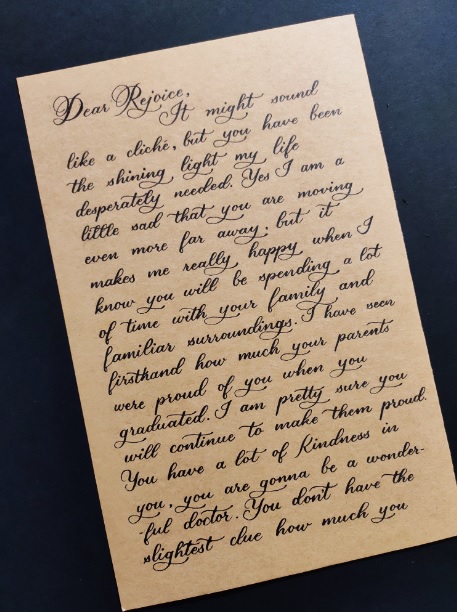 Dear Rejoice,
It might sound
like a cliché, but you have been
the shining light my life
desperately needed. Yes I am a
little sad that you are moving
even more far away; but it
makes me really happy when I
know you will be spending a lot
of time with your family and
familiar surroundings. I have seen
firsthand how much your parents
were proud of you when you
graduated. I am pretty sure you
will continue to make them proud.
You have a lot of Kindness in
you, you are gonna be a wonder-
-ful doctor. You don't have the
slightest clue how much you